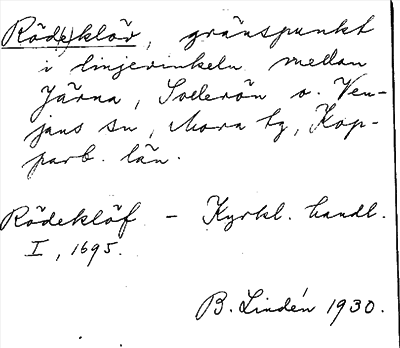 Röd(e)klöv, gränspunkt
i linjevinkeln mellan
Järna, Sollerön o. Ven-
jans sn, Mora tg, Kop-
parb. län.
Rödeklöf - Kyrkl. handl.
I, 1695.
B. Lindén 1930.